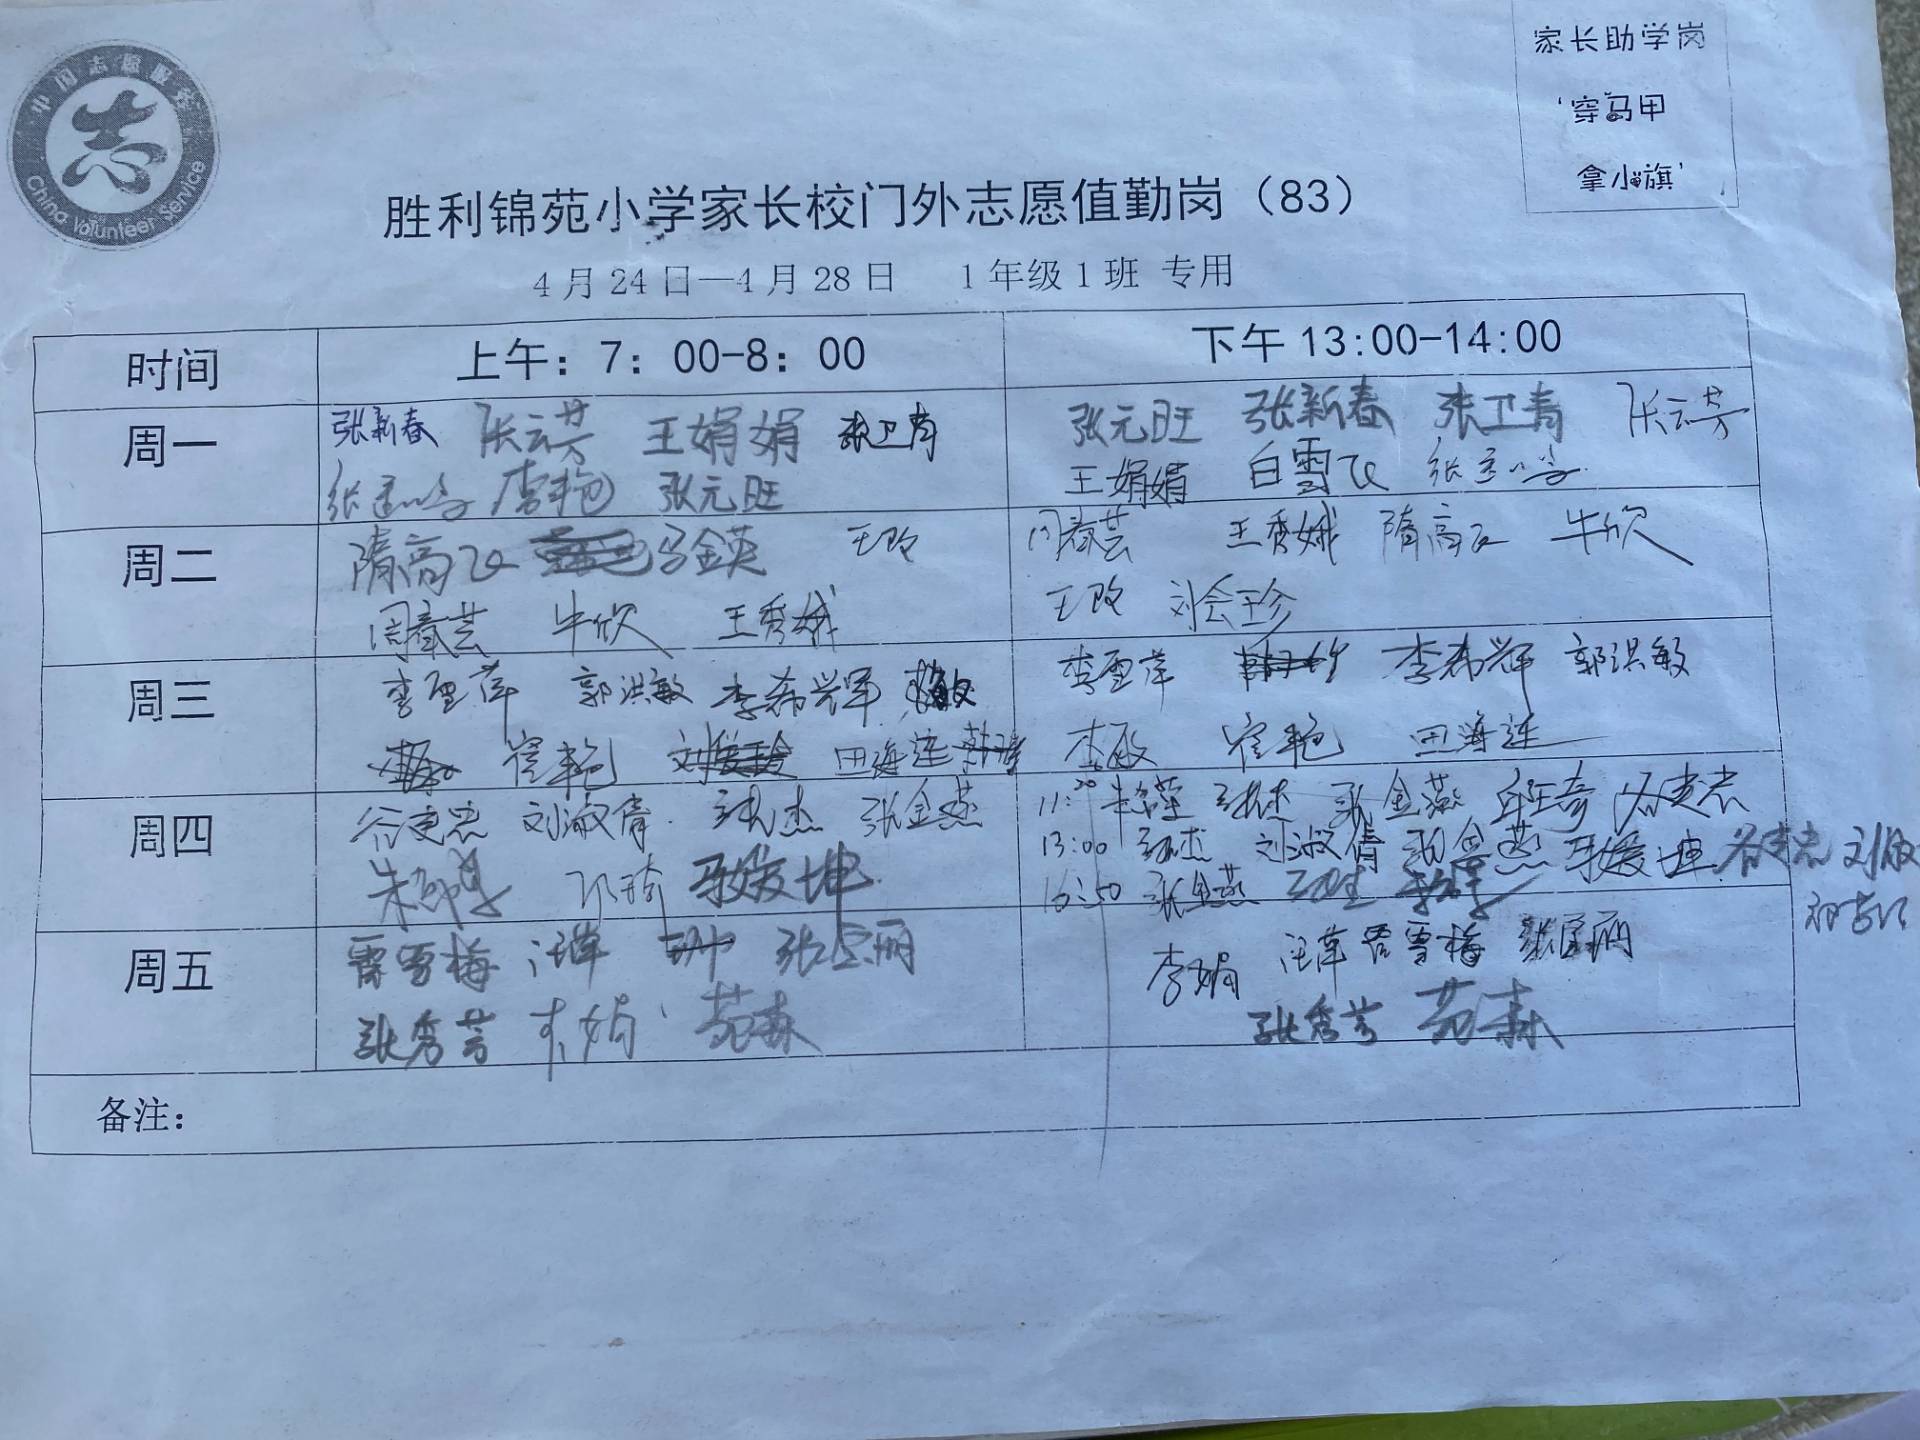 中国志愿服务
志
China Volunteer Service
家长助学岗
'穿马甲
拿小旗'
胜利锦苑小学家长校门外志愿值勤岗（83）
4月24日—4月28日 1年级1班 专用
时间 上午：7：00-8：00 下午13:00-14:00
周一
张新春 张云芳 王娟娟 张卫青
张元旺
张元旺 张新春 张卫青 张云芳
王娟娟 白雪飞
周二
隋高飞 王玫
周春芸 牛欣 王秀娥
周春芸 王秀娥 隋高飞 牛欣
王玫 刘会珍
周三
李雪萍 郭洪敏 李希辉
崔艳 田海连
李雪萍 李希辉 郭洪敏
李敏 崔艳 田海连
周四
谷建忠 刘淑倩 张杰 张金燕
马媛坤
11:20 张杰 张金燕 谷建忠
13:00 张杰 刘淑倩 张金燕 马媛坤 谷建忠
16:50 张金燕
周五
贾雪梅 汪萍
张秀芳 李娟 苑森
李娟 汪萍 贾雪梅
张秀芳 苑森
备注：